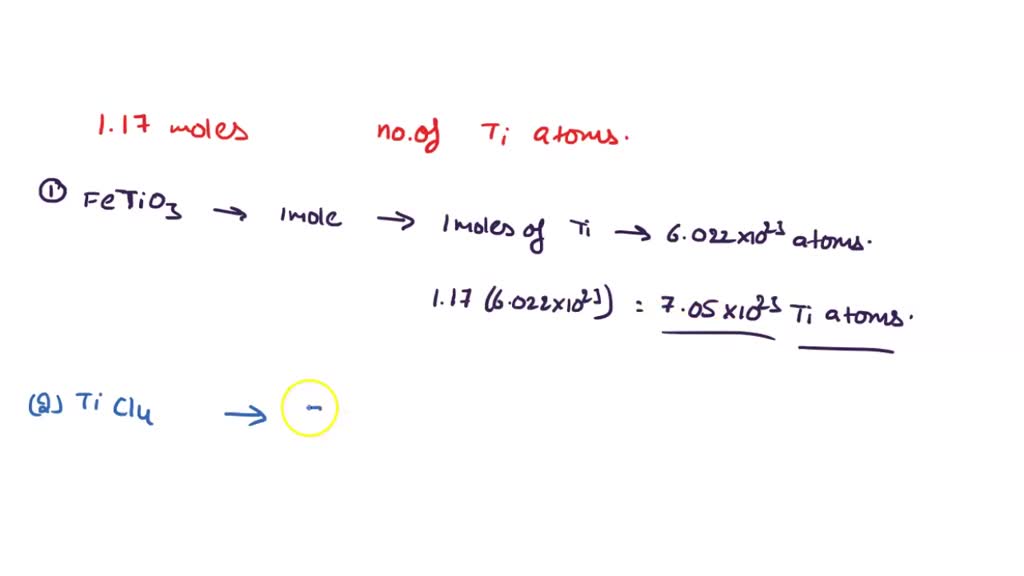 1.17 moles no.of Ti atoms.
① FeTiO3 → 1mole → 1moles of Ti → 6.022×10²³ atoms.
1.17 (6.022×10²³) = 7.05×10²³ Ti atoms.
(2) TiCl4 → -